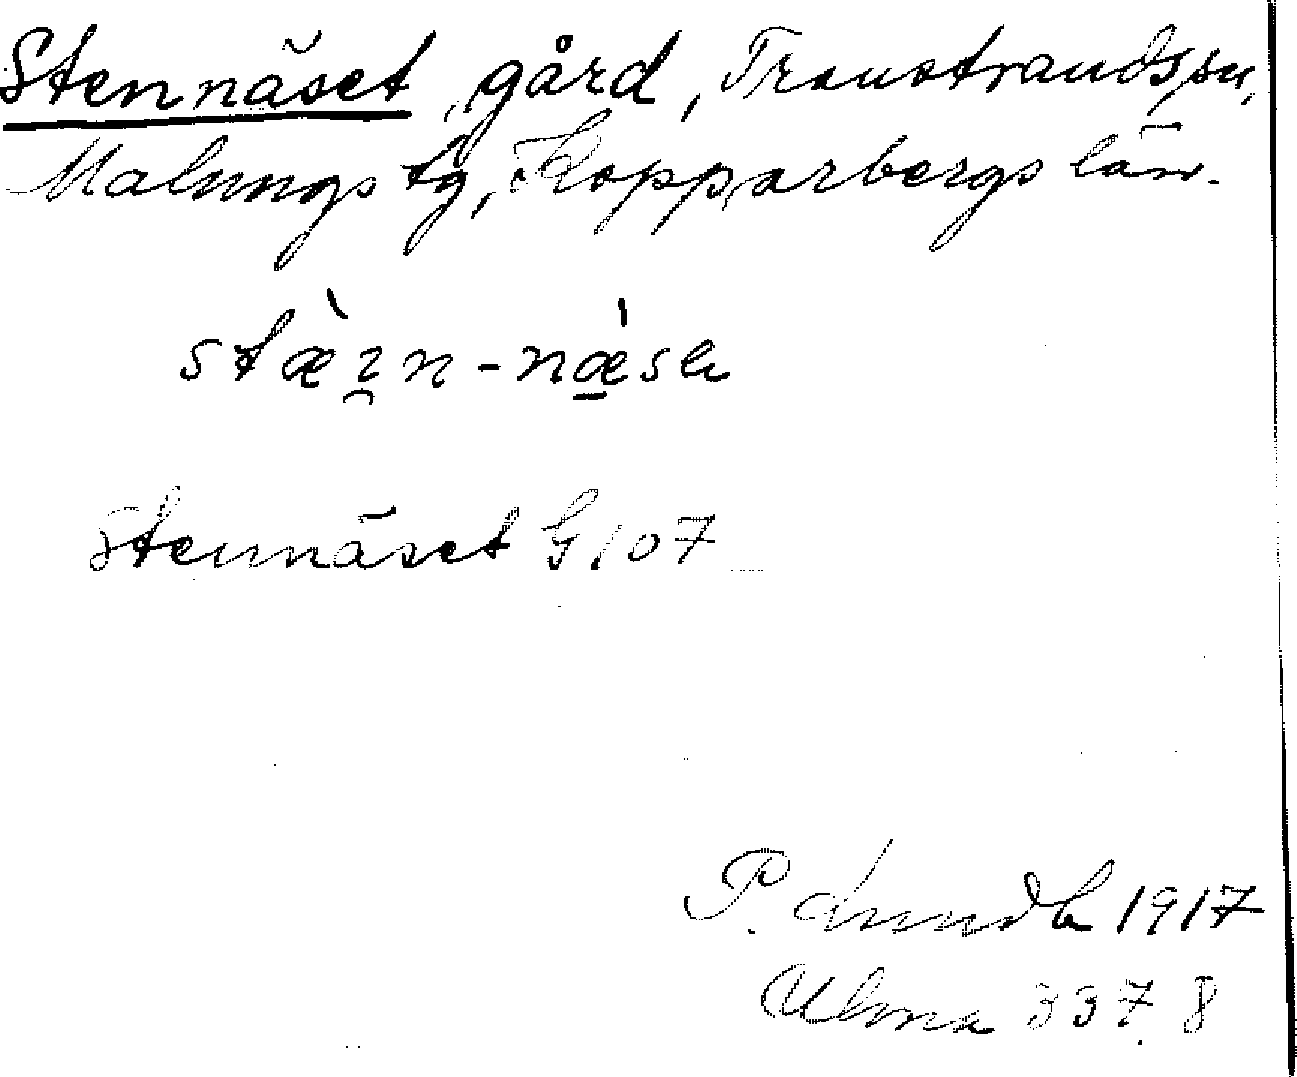 Stennäset, gård, Transtrands sn,
Malungs tg, Kopparbergs län.
Stennäset G 107
P. Lundh 1917
Ulma 337. 8